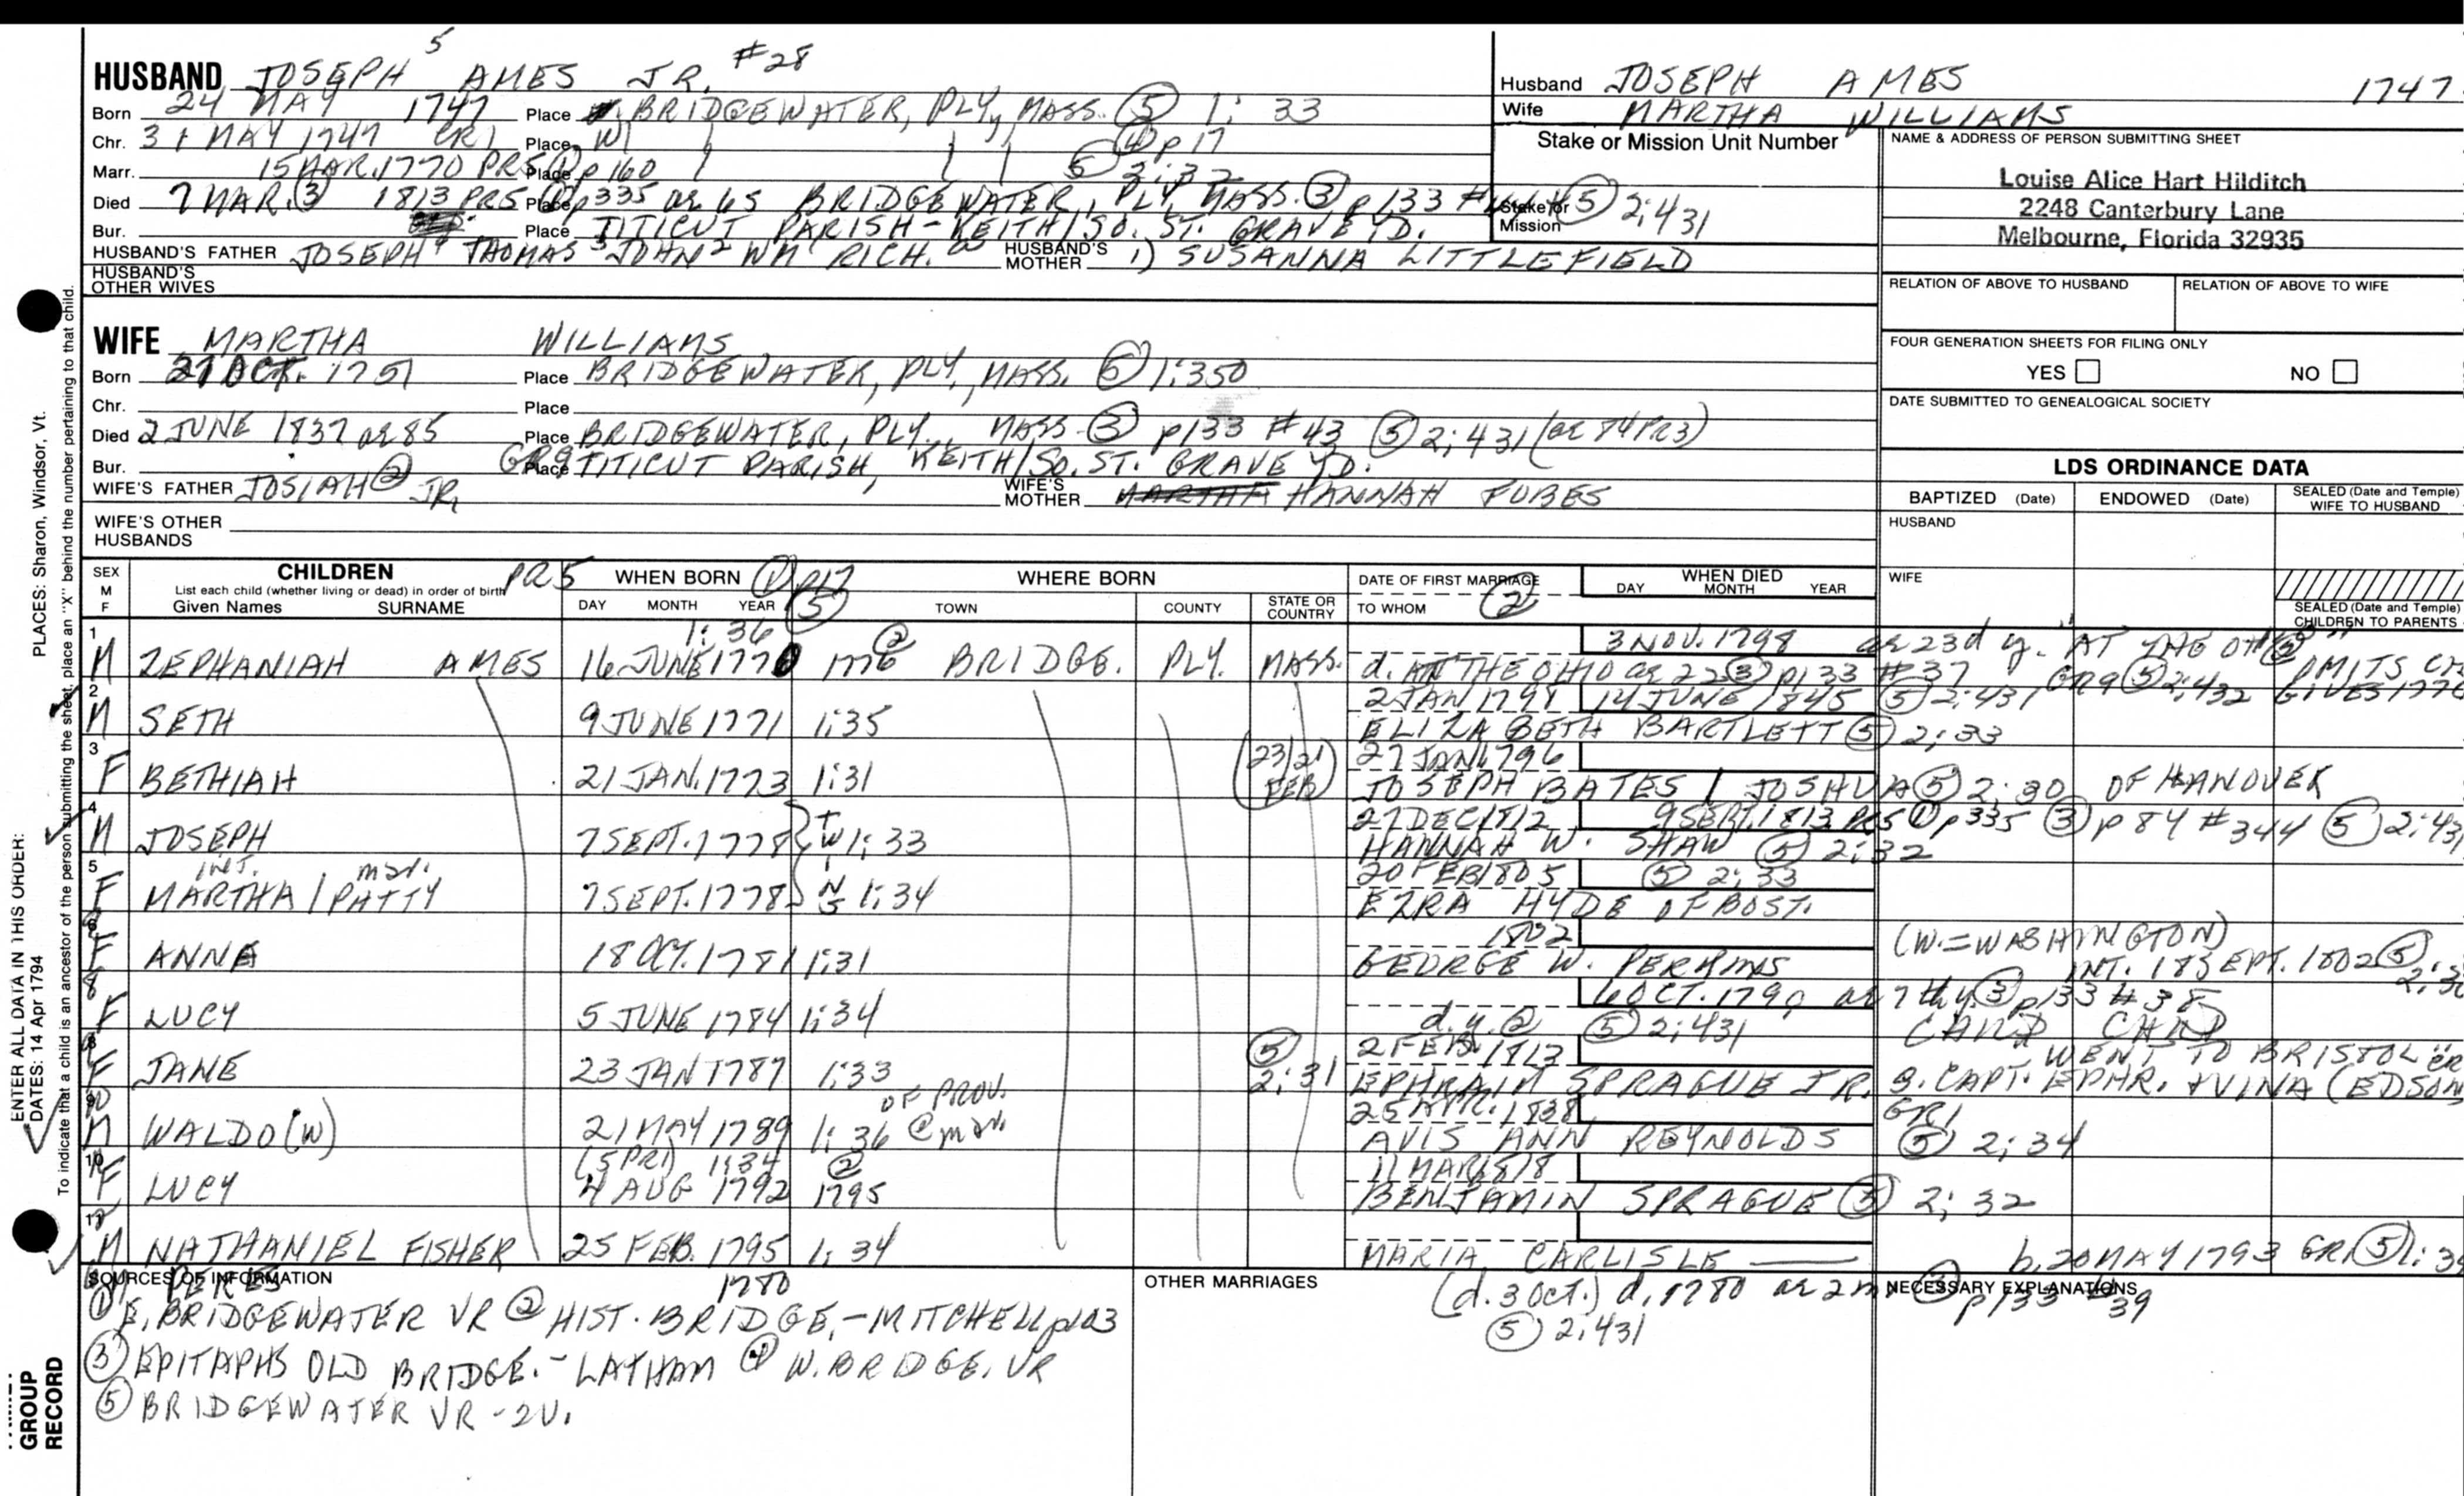 HUSBAND JOSEPH 5 AMES JR. #28
Born 24 MAY 1747 Place BRIDGEWATER, PLY, MASS. (5) 1: 33
Chr. 31 MAY 1747 CR1 Place W (4) p 17
Marr. 15 MAR. 1770 PR5 (1) Place p 160 (5) 2:32
Died 7 MAR. (3) 1813 PR5 (1) Place p 335 ae 65 BRIDGEWATER, PLY, MASS. (3) p 133 # (5) 2:431
Bur. Place TITICUT PARISH - KEITH/SO. ST. GRAVE YD.
HUSBAND'S FATHER JOSEPH 4 THOMAS 3 JOHN 2 WM RICH. HUSBAND'S MOTHER 1) SUSANNA LITTLEFIELD
HUSBAND'S OTHER WIVES
Husband JOSEPH AMES 1747
Wife MARTHA WILLIAMS
Stake or Mission Unit Number
Stake or Mission
NAME & ADDRESS OF PERSON SUBMITTING SHEET
Louise Alice Hart Hilditch
2248 Canterbury Lane
Melbourne, Florida 32935
RELATION OF ABOVE TO HUSBAND RELATION OF ABOVE TO WIFE
WIFE MARTHA WILLIAMS
Born OCT. 1751 Place BRIDGEWATER, PLY., MASS. (5) 1:350
Chr. Place
Died 2 JUNE 1837 ae 85 Place BRIDGEWATER, PLY., MASS. (3) p 133 #43 (5) 2:431 (ae 84 PR3)
Bur. GR9 Place TITICUT PARISH, KEITH/SO. ST. GRAVE YD.
WIFE'S FATHER JOSIAH (2) JR. WIFE'S MOTHER MARTHA HANNAH
WIFE'S OTHER HUSBANDS
FOUR GENERATION SHEETS FOR FILING ONLY
YES NO
DATE SUBMITTED TO GENEALOGICAL SOCIETY
LDS ORDINANCE DATA
BAPTIZED (Date) ENDOWED (Date) SEALED (Date and Temple) WIFE TO HUSBAND
HUSBAND
WIFE
SEALED (Date and Temple) CHILDREN TO PARENTS
SEX M F CHILDREN PR5 WHEN BORN (1) p 17 (5) WHERE BORN DATE OF FIRST MARRIAGE (2) WHEN DIED
List each child (whether living or dead) in order of birth
Given Names SURNAME DAY MONTH YEAR TOWN COUNTY STATE OR COUNTRY TO WHOM DAY MONTH YEAR
1 1: 36 (2) 3 NOV. 1798 ae 23d y. "AT THE
M ZEPHANIAH AMES 16 JUNE 1770 1776 BRIDGE. PLY. MASS. d. AT THE OHIO ae 22 (3) p 133 #37 GR9 (5) 2:432
2 2 JAN 1798 14 JUNE 1845 (5) 2:431
M SETH 9 JUNE 1771 1:35 ELIZABETH BARTLETT (5) 2:33
3 (23/21 FEB) 27 JAN 1796
F BETHIAH 21 JAN. 1773 1:31 JOSEPH BATES / JOSHUA (5) 2:30 OF HANOVER
4 27 DEC 1812 9 SEPT. 1813 PR5 (1) p 335 (3) p 84 #344 (5) 2:43
M JOSEPH 7 SEPT. 1778 TW 1:33 HANNAH W. SHAW (5) 2:32
5 INT. mar. 20 FEB 1805 (5) 2:33
F MARTHA / PATTY 7 SEPT. 1778 IN S 1:34 EZRA HYDE OF BOST.
1802 (W. = WASHINGTON)
F ANNE 18 OCT. 1781 1:31 GEORGE W. PERKINS INT. 18 SEPT. 1802 (5)
8 6 OCT. 1790 ae 7th y. (3) p 133 # 38
F LUCY 5 JUNE 1784 1:34 d. y. (2) (5) 2:431
(5) 2 FEB. 1813 WENT TO BRISTOL
F JANE 23 JAN 1787 1:33 2:31 EPHRAIM SPRAGUE JR. S. CAPT. EPHR. + VINA (EDSON
OF PROV. 25 APR. 1838 GR1
M WALDO (W) 21 MAY 1789 1:36 @ mar. AVIS ANN REYNOLDS (5) 2:34
10 (5 PR1) 1:34 (2) 11 MAR 1818
F LUCY 4 AUG 1792 1795 BENJAMIN SPRAGUE (5) 2:32
M NATHANIEL FISHER 25 FEB. 1795 1:34 MARIA CARLISLE b. 20 MAY 1793 GR1 (5) 1:3
SOURCES OF INFORMATION PEREZ 1780 OTHER MARRIAGES (d. 3 OCT.) d. 1780 ae 2 m (3) p 133 #39 NECESSARY EXPLANATIONS
(5) 2:431
(1) E. BRIDGEWATER VR (2) HIST. BRIDGE. - MITCHELL p 103
(3) EPITAPHS OLD BRIDGE. - LATHAM (4) W. BRIDGE. VR
(5) BRIDGEWATER VR - 2V.
ENTER ALL DATA IN THIS ORDER:
DATES: 14 Apr 1794 PLACES: Sharon, Windsor, Vt.
To indicate that a child is an ancestor of the person submitting the sheet, place an "X" behind the number pertaining to that child.
GROUP RECORD